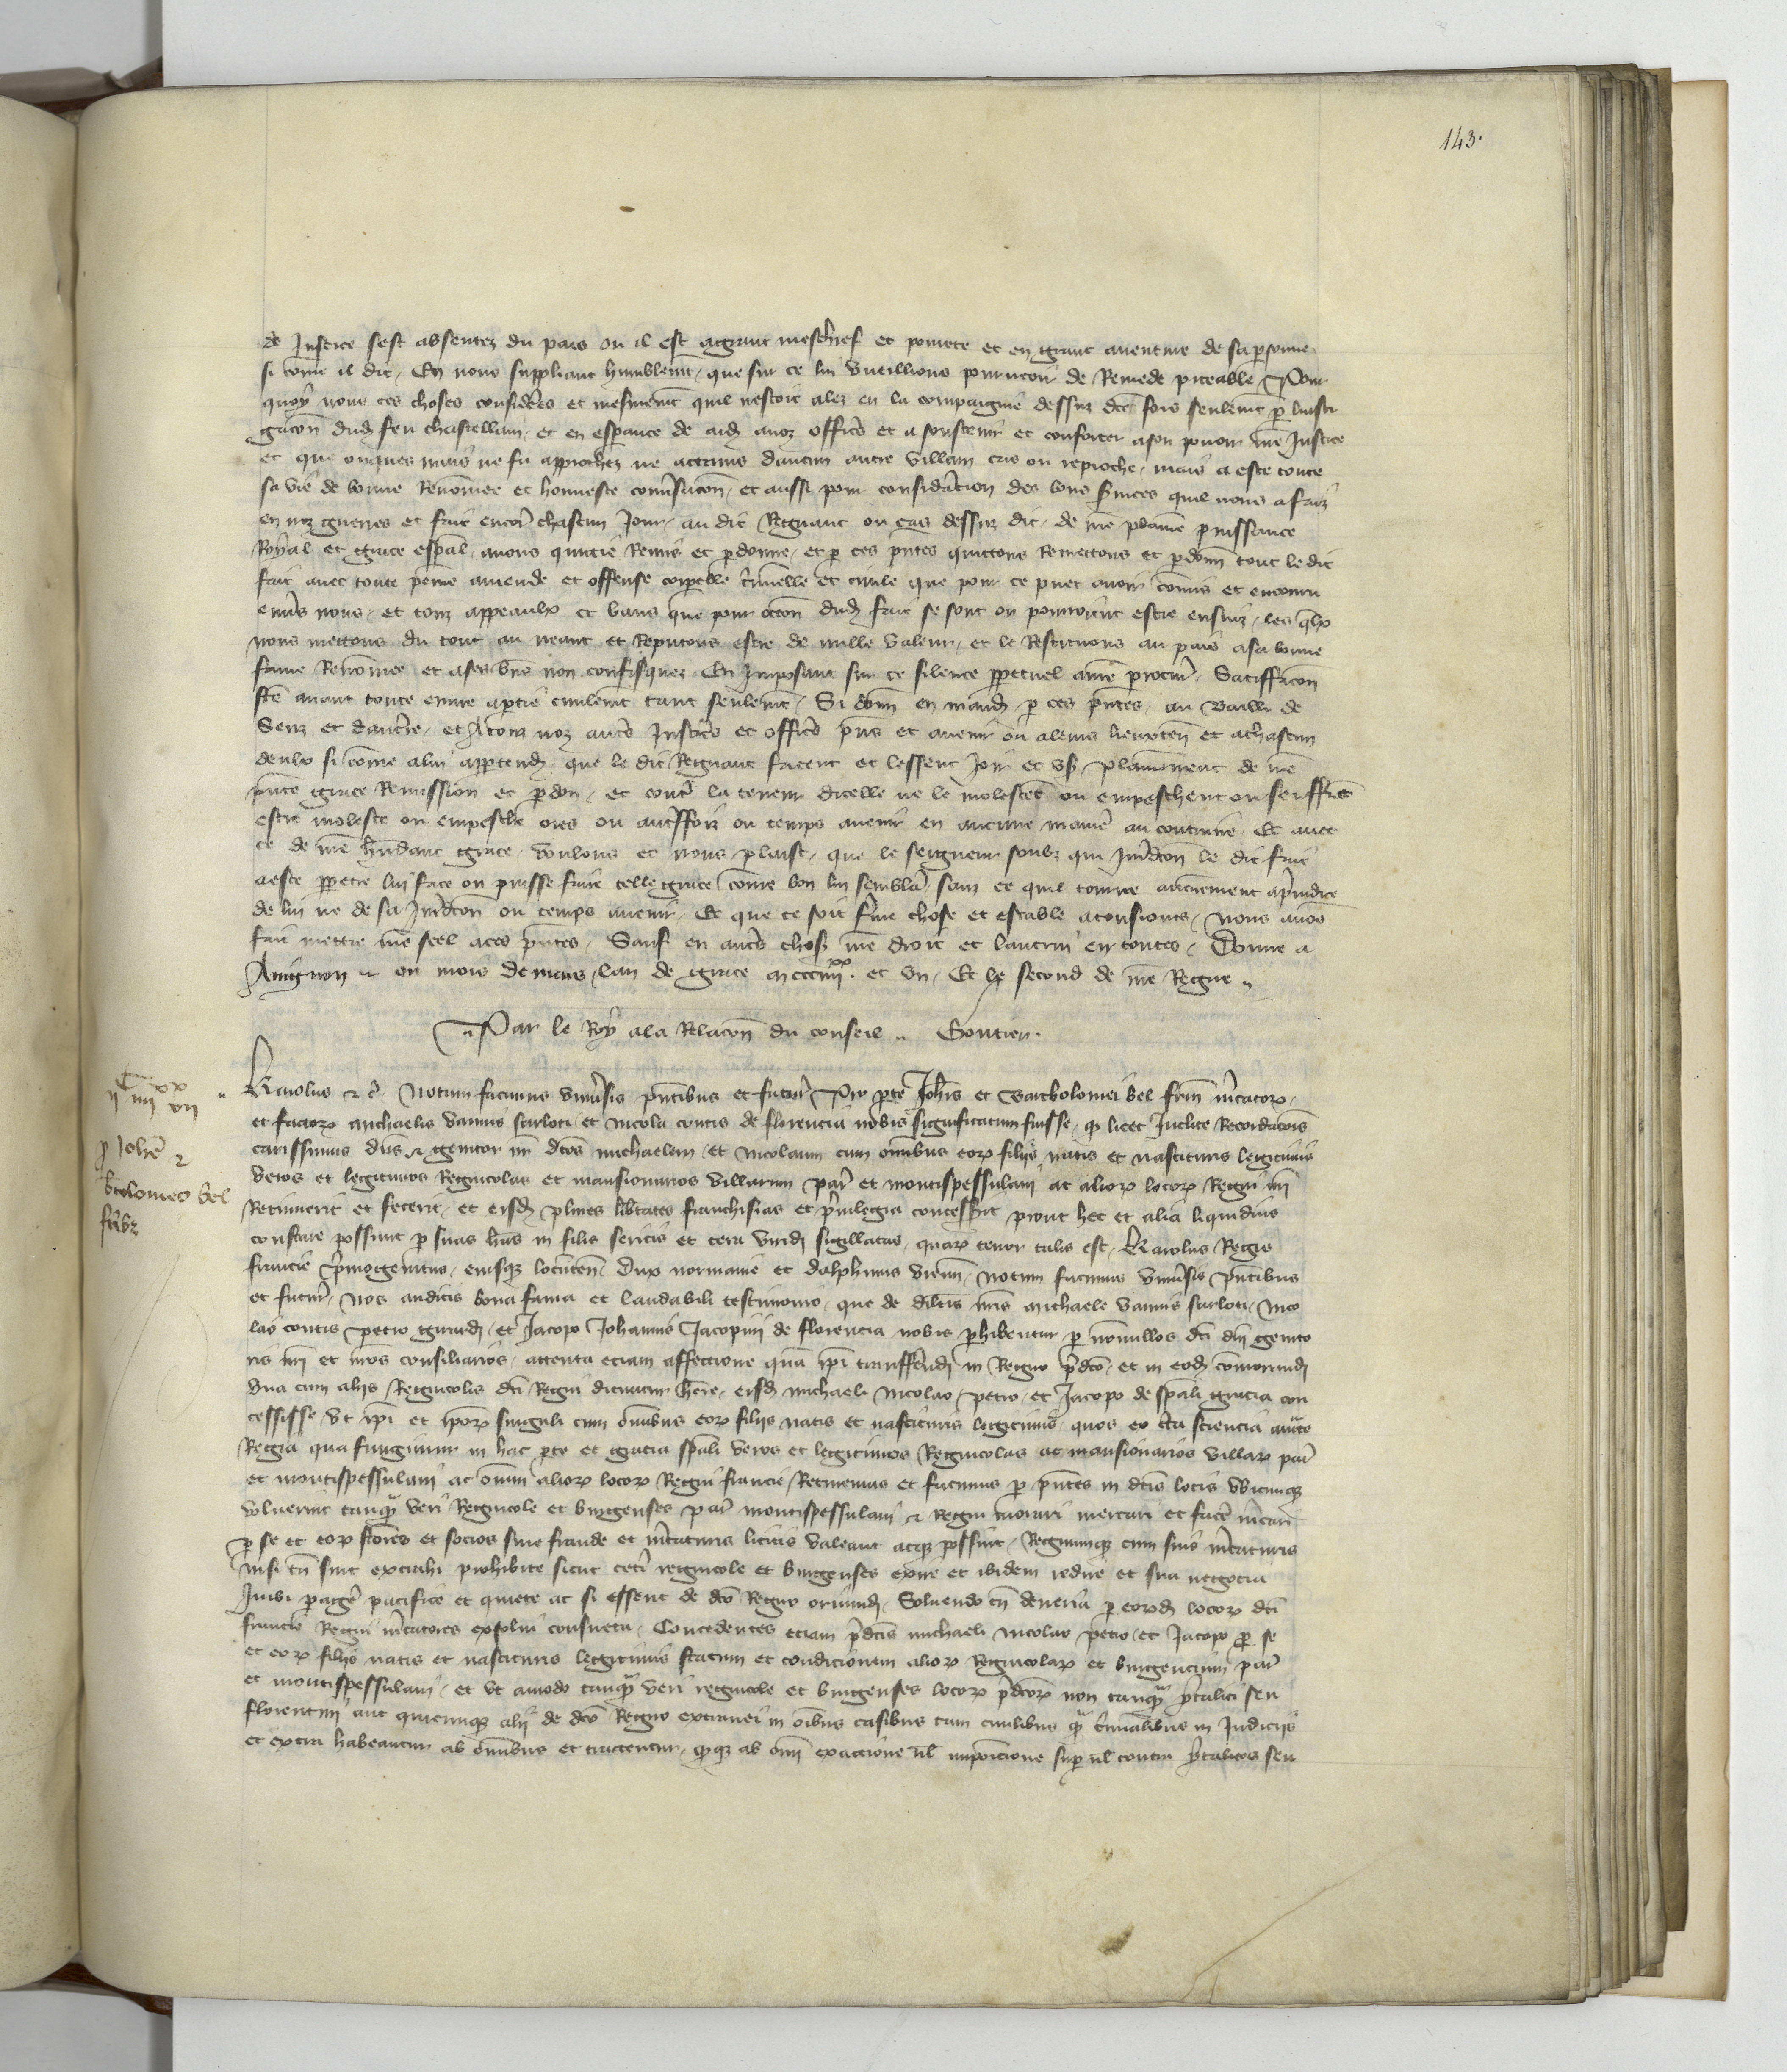 143.
de Justice sest absentez du pais ou il est a grant meschief et povrete et en grant aventure de sa personne
si come il dit, En nous suppliant humblemt, que sur ce lui vueillions pourveoir de Remede piteable, Pour
quoy nous ces choses considérées et mesmemt quil nestoit alez en la compaignie dessuz dcte fors seulemt p linsti
gacon dud feu chastellain, et en espance de aid a noz officrs et a soustenir et conforter a son pouoir nre Justice
et que onques mais ne fu approchez ne actains daucun autre villain cas ou reproche, mais a este toute
sa vie de bonne Renomee et honneste convsacon, et aussi pour considacion des bons svices quil nous a faiz
en noz guerres et fait encor chascun Jour, au dit Regnaut ou cas dessuz dit, de nre plaine puissance
Royal et grace espal, avons quictie Remis et pdonne, et p ces pntes quictons Remettons et pdonn tout le dit
fait avec toute peine amende et offense corpelle criminelle et civile que pour ce puet avoir comis et encouru
envs nous, et touz appeaulx et bans que pour occon dud fait se sont ou pourroient estre ensuiz, les qlx
nous mettons du tout au neant et Reputons estre de nulle valeur, et le Restituons au pais a sa bonne
fame Renomee et a ses bns non confisquez En Imposant sur ce silence ppetuel a nre procur, Satisffacon
fte avant toute euvre a ptie civilemt tant seulemt, Si donn en mand p ces pntes, au Bailli de
Senz et daucrre, et A touz noz autrs Justics et officrs pns et avenir ou a leurs lieuxten et a chascun
deulx si come a lui apptend, que le dit Regnaut facent et lessent Joir et us plainement de nre
pnte grace Remission et pdon, et contr la teneur dicelle ne le molestet ou empeschent ou seuffret
estre moleste ou empesche ores ou autrffoiz ou temps avenir en aucune manie au contraire, Et avec
ce de nre habundant grace, voulons et nous plaist, que le seigneur soubz qui Jurdcon le dit fait
a este ppetre lui face ou puisse faire telle grace come bon lui semblera, sanz ce quil tourne aucunement a pIudice
de lui ne de sa Jurdcon ou temps avenir, Et que ce soit ferme chose et estable a tousiours, Nous avons
fait mettre nre seel a ces pntes, Sauf en autrs chos nre droit et lautrui en toutes, Donne a
Avignon ou mois de mars, lan de grace m ccc iiiixx. et un, Et le second de nre Regne
Par le Roy a la Relacon du conseil Gontier.
C
ii iiiixx vii
p Johe et
btolomeo bel
fribz
Karolus et c, Notum facimus univsis pntibus et futur, Pro pte Johis et Bartholomei bel frm mcator,
et factor michaelis vannis scarloti, et nicola contis de florencia nobis significatum fuisse, q licet Inclite Recordacois
carissimus dns et genitor nr dctos michaelem, et nicolaum cum omibus eor filiis natis et nascituris legitimis
veros et legitimos Regnicolas et mansionarios villarum par et montispessulani ac alior locor Regni nri
Retinuerit et fecerit, et eisd plures libtates franchisias et privilegia concesserit prout hec et alia liquidius
constare possunt p suas lras in filis sericis et cera virid sigillatas, quar tenor talis est, Karolus Regis
francie primogenitus, eiusq locumten, Dux normanie et dalphinus vienn, Notum facimus univsis pntibus
et futur, Nos auditis bona fama et laudabili testimonio, que de dilctis nris michaele vannis scarloti, Nico
lao contis, Petro gurard, et Jacopo Johannis Jacopini de florencia nobis phibentur p nonnullos dcti dni genito
ris nri et nros consiliarios, attenta eciam affectione qua ipi transfferend in Regno prdcto, et in eod comorand
una cum aliis Regnicolis dcti Regni dicuntur here, eisd michaeli Nicolao, petro, et Jacopo de spali gracia con
cessisse, ut ipi et ipor singuli cum omibus eor filiis natis et nascituris legitimis quos ex certa sciencia aucte
Regia qua fungimur in hac pte et gracia spali veros et legitimos Regnicolas ac mansionarios villar par
et montispessulani ac omim alior locor Regni francie Retinemus et facimus p pntes in dctis locis ubicumq
voluerint tanq veri Regnicole et burgenses par montispessulani et Regni morari mercari et face mcari
p se et eor fctores et socios sine fraude et mcaturis licitis valeant atq possint, Regnumq cum suis mcaturis
Nisi tn sint extrahi prohibite sicut ceti regnicole et burgenses exire et ibidem redire et sua negocia
Inibi page pacifice et quiete ac si essent de dcto Regno oriund, Solvendo tn deveria p eord locor dcti
francie Regni mcatores exsolvi consueta, Concedentes eciam prdctis michaeli Nicolao petro, et Jacopo p se
et eor filiis natis et nascituris legitimis statum et condicionem alior Regnicolar et burgencium par
et montispessulani, et ut amodo tanq veri regnicole et burgenses locor prdctor non tanq ytalici seu
florentini aut quicumq alii de dcto Regno extranei in oibus casibus tam civilibus q criminalibus in Judiciis
et extra habeantur ab omibus et tractentur, q q ab omi exaccione vl imposicione sup vl contra ytalicos seu